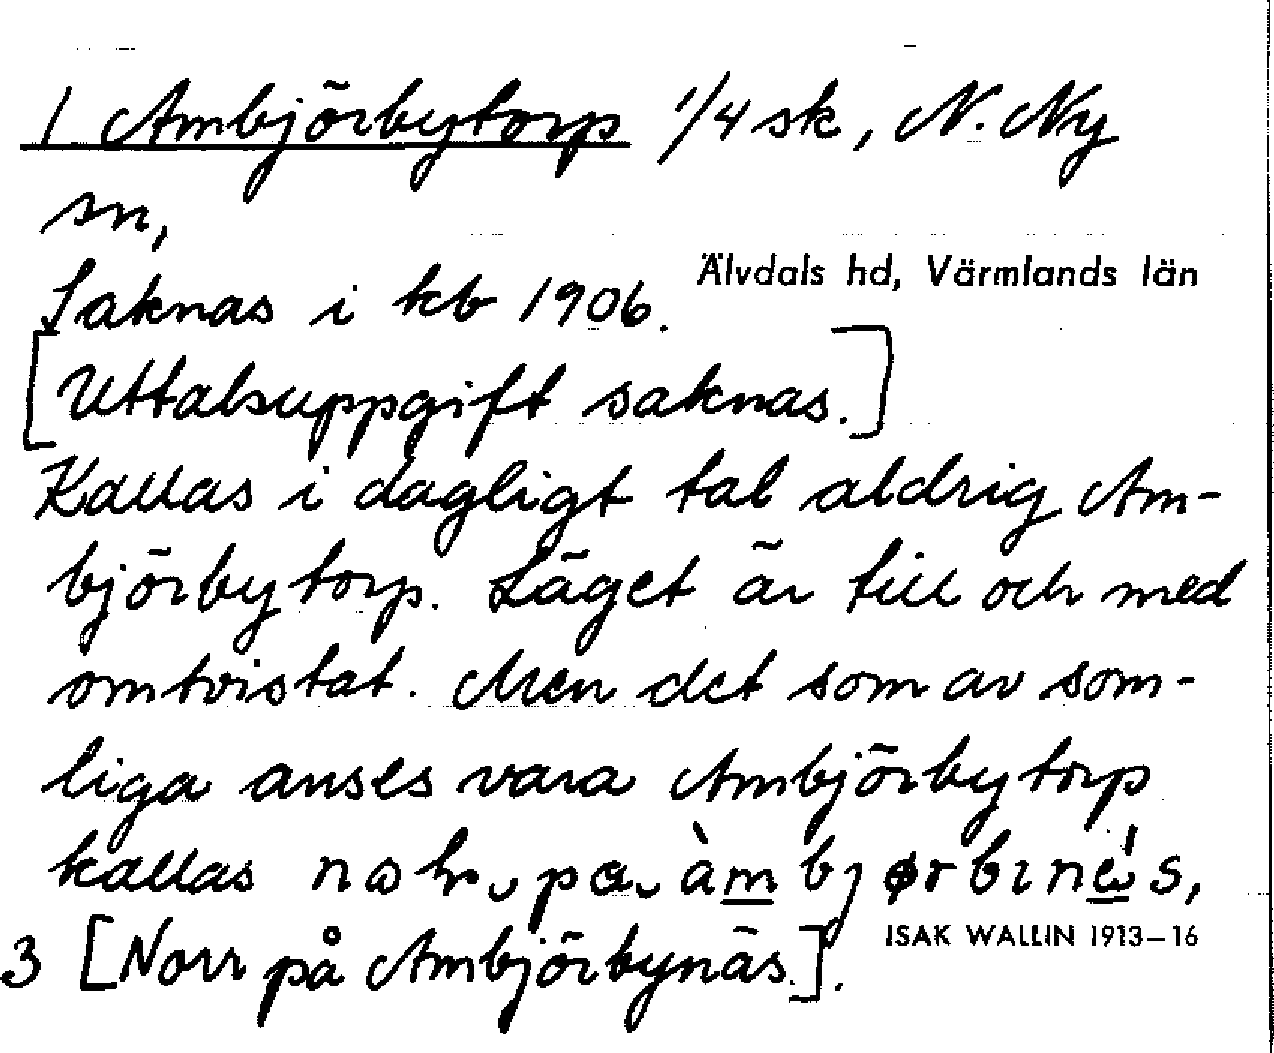 1 Ambjörbytorp 1/4 sk, N. Ny
sn,
Älvdals hd, Värmlands län
Saknas i kb 1906.
[Uttalsuppgift saknas.]
Kallas i dagligt tal aldrig Am-
björbytorp. Läget är till och med
omtvistat. Men det som av som-
liga anses vara Ambjörbytorp
kallas
3 [Norr på Ambjörbynäs.].
ISAK WALLIN 1913–16